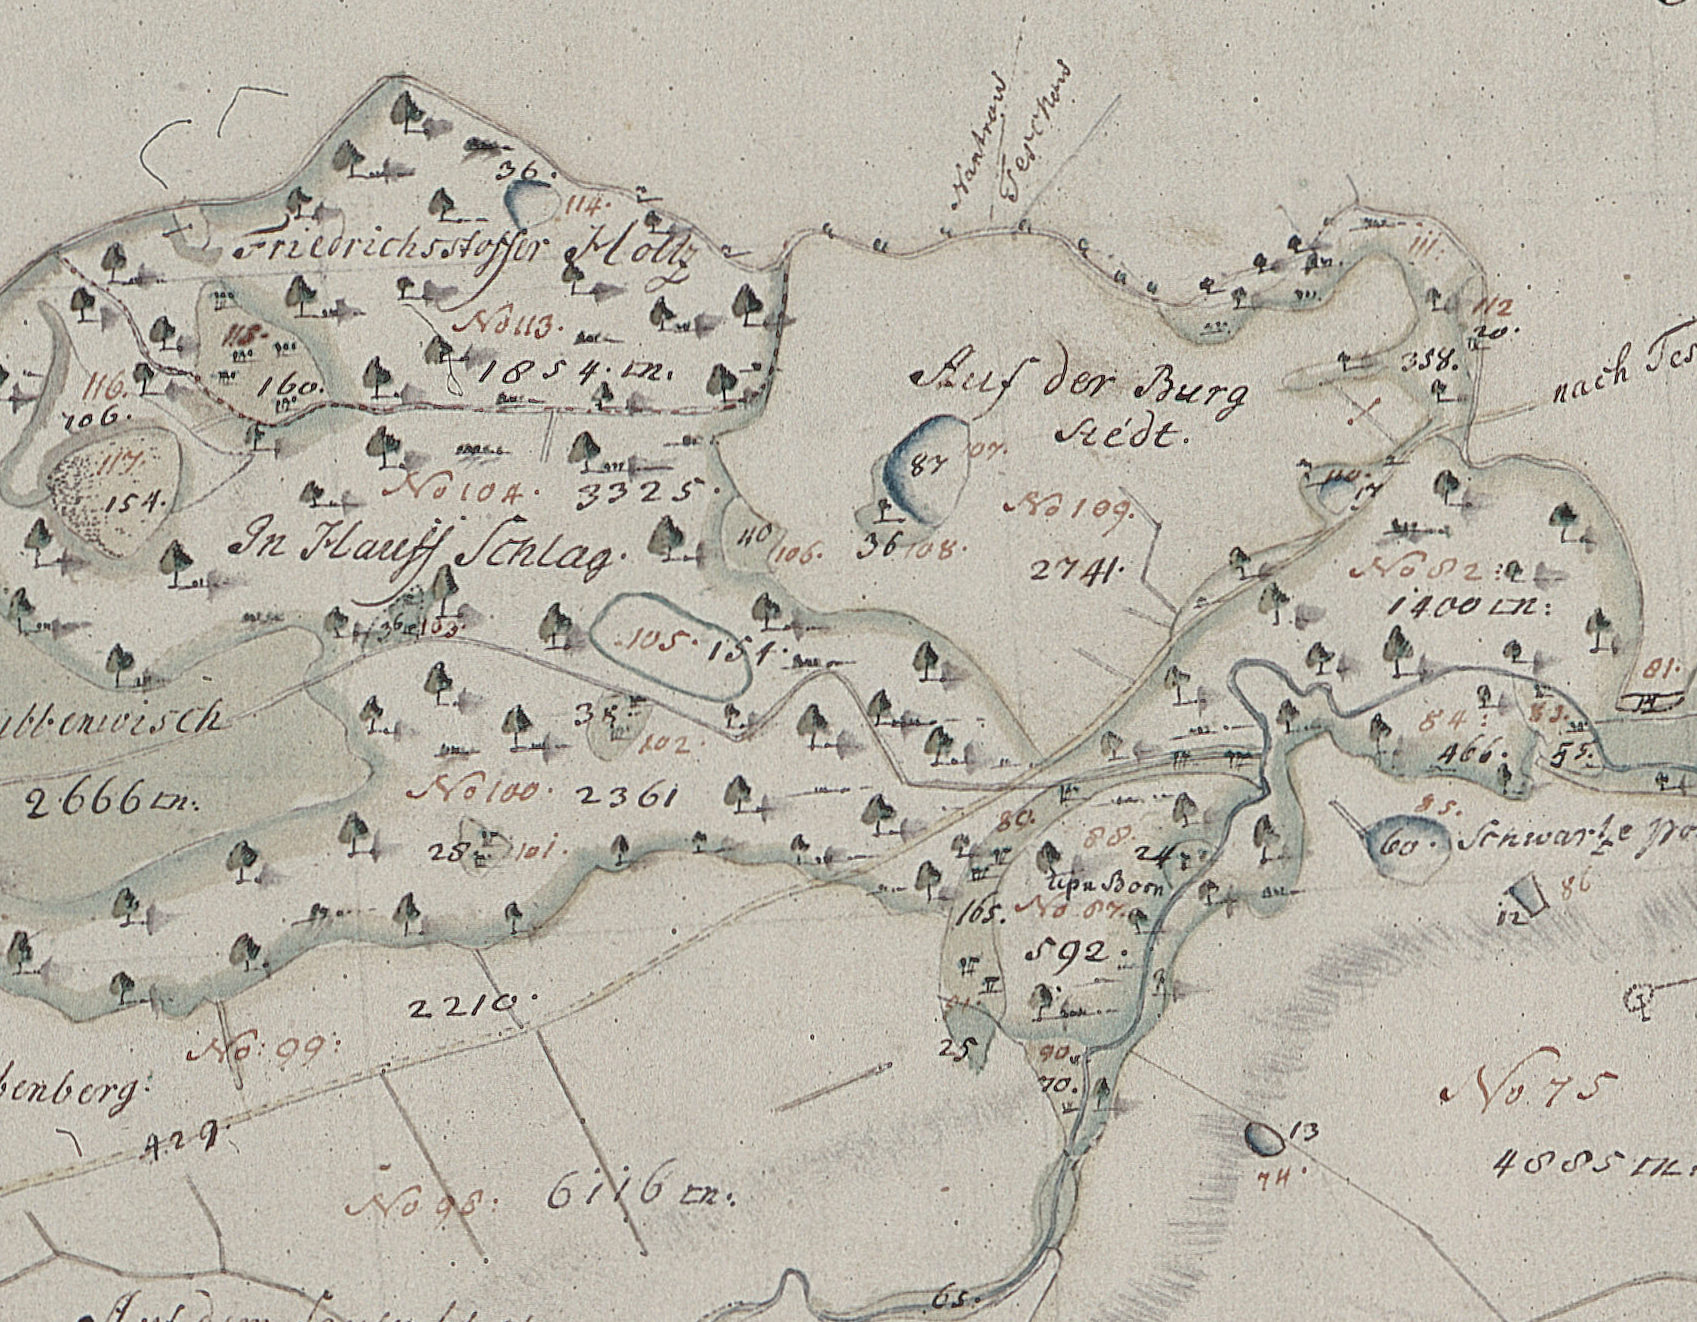 Nantrow
Teschow
36.
114.
Friedrichsstoffer Holtz
111.
No 113.
1854. m.
115.
160.
112
20.
358.
116.
106.
Auf der Burg
stédt.
nach Tes
87
117.
154.
No 104. 3325.
No 109.
17
In Hauff Schlag.
40
106.
36 108.
2741.
No 82:
1400 m:
36 103.
105. 154.
81.
bbenwisch
38
102.
84:
83.
466.
55.
2666 m.
No 100. 2361
80.
88.
85.
60. Schwartze
28 101.
24
upn Born
165. No 87.
12
86
592.
2210.
No: 99:
25
90.
70.
No 75
benberg.
429.
13
74.
4885 m.
No 98: 6116 m.
65.
Auf dem